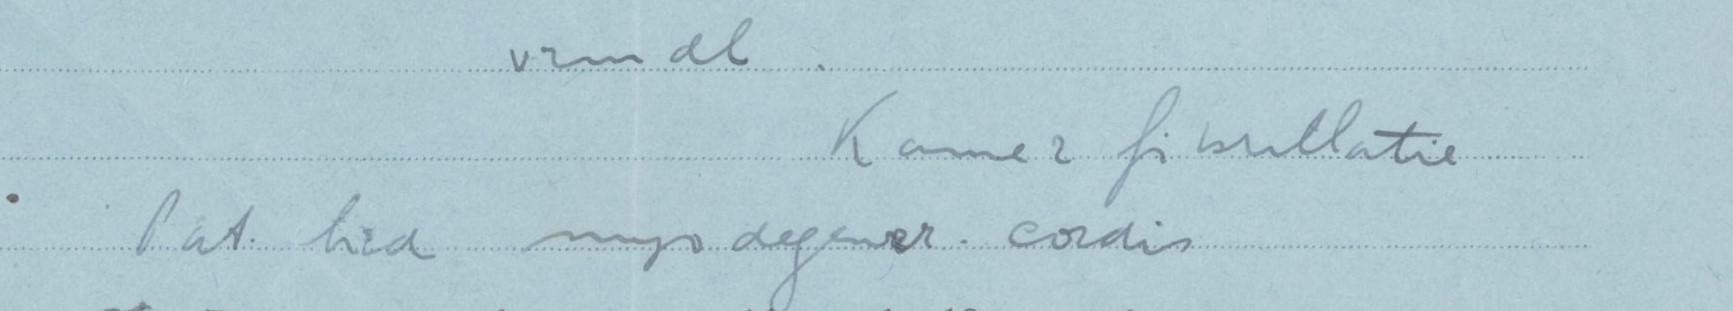 Kamer fibrillatie
Pat. had myodegener. cordis